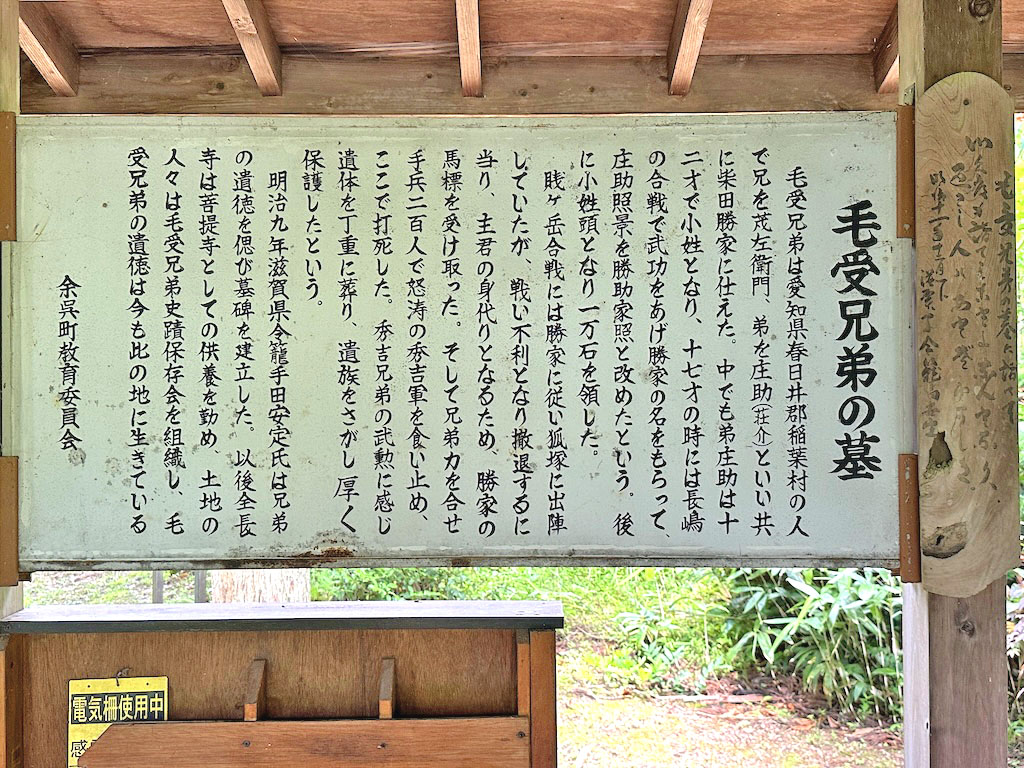 毛受兄弟の墓
毛受兄弟は愛知県春日井郡稲葉村の人
で兄を茂左衛門、弟を庄助(荘介)といい共
に柴田勝家に仕えた。中でも弟庄助は十
二才で小姓となり、十七才の時には長嶋
の合戦で武功をあげ勝家の名をもらって、
庄助照景を勝助家照と改めたという。後
に小姓頭となり一万石を領した。
賎ヶ岳合戦には勝家に従い狐塚に出陣
していたが、戦い不利となり撤退するに
当り、主君の身代りとなるため、勝家の
馬標を受け取った。そして兄弟力を合せ
手兵二百人で怒涛の秀吉軍を食い止め、
ここで打死した。秀吉兄弟の武勲に感じ
遺体を丁重に葬り、遺族をさがし厚く
保護したという。
明治九年滋賀県令籠手田安定氏は兄弟
の遺徳を偲び墓碑を建立した。以後全長
寺は菩提寺としての供養を勤め、土地の
人々は毛受兄弟史蹟保存会を組織し、毛
受兄弟の遺徳は今も此の地に生きている
余呉町教育委員会
電気柵使用中
感